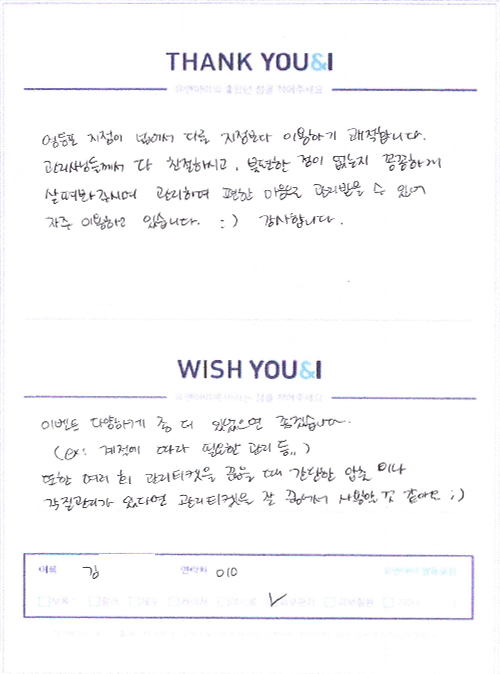 THANK YOU&I
유앤아이의 좋았던 점을 적어주세요
영등포 지점이 넓어서 다른 지점보다 이용하기 쾌적합니다.
관리사님들께서 다 친절하시고, 불편한 점이 없는지 꼼꼼하게
살펴봐주시며 관리하여 편한 마음으로 관리받을 수 있어
자주 이용하고 있습니다. :) 감사합니다.
WISH YOU&I
유앤아이에 바라는 점을 적어주세요
이벤트 다양하게 좀 더 있었으면 좋겠습니다.
(ex: 계절에 따라 필요한 관리 등..)
또한 여러 회 관리티켓을 끊을 때 간단한 압출이나
각질관리가 있다면 관리티켓을 잘 끊어서 사용할 것 같아요 ;)
이름 김 연락처 010